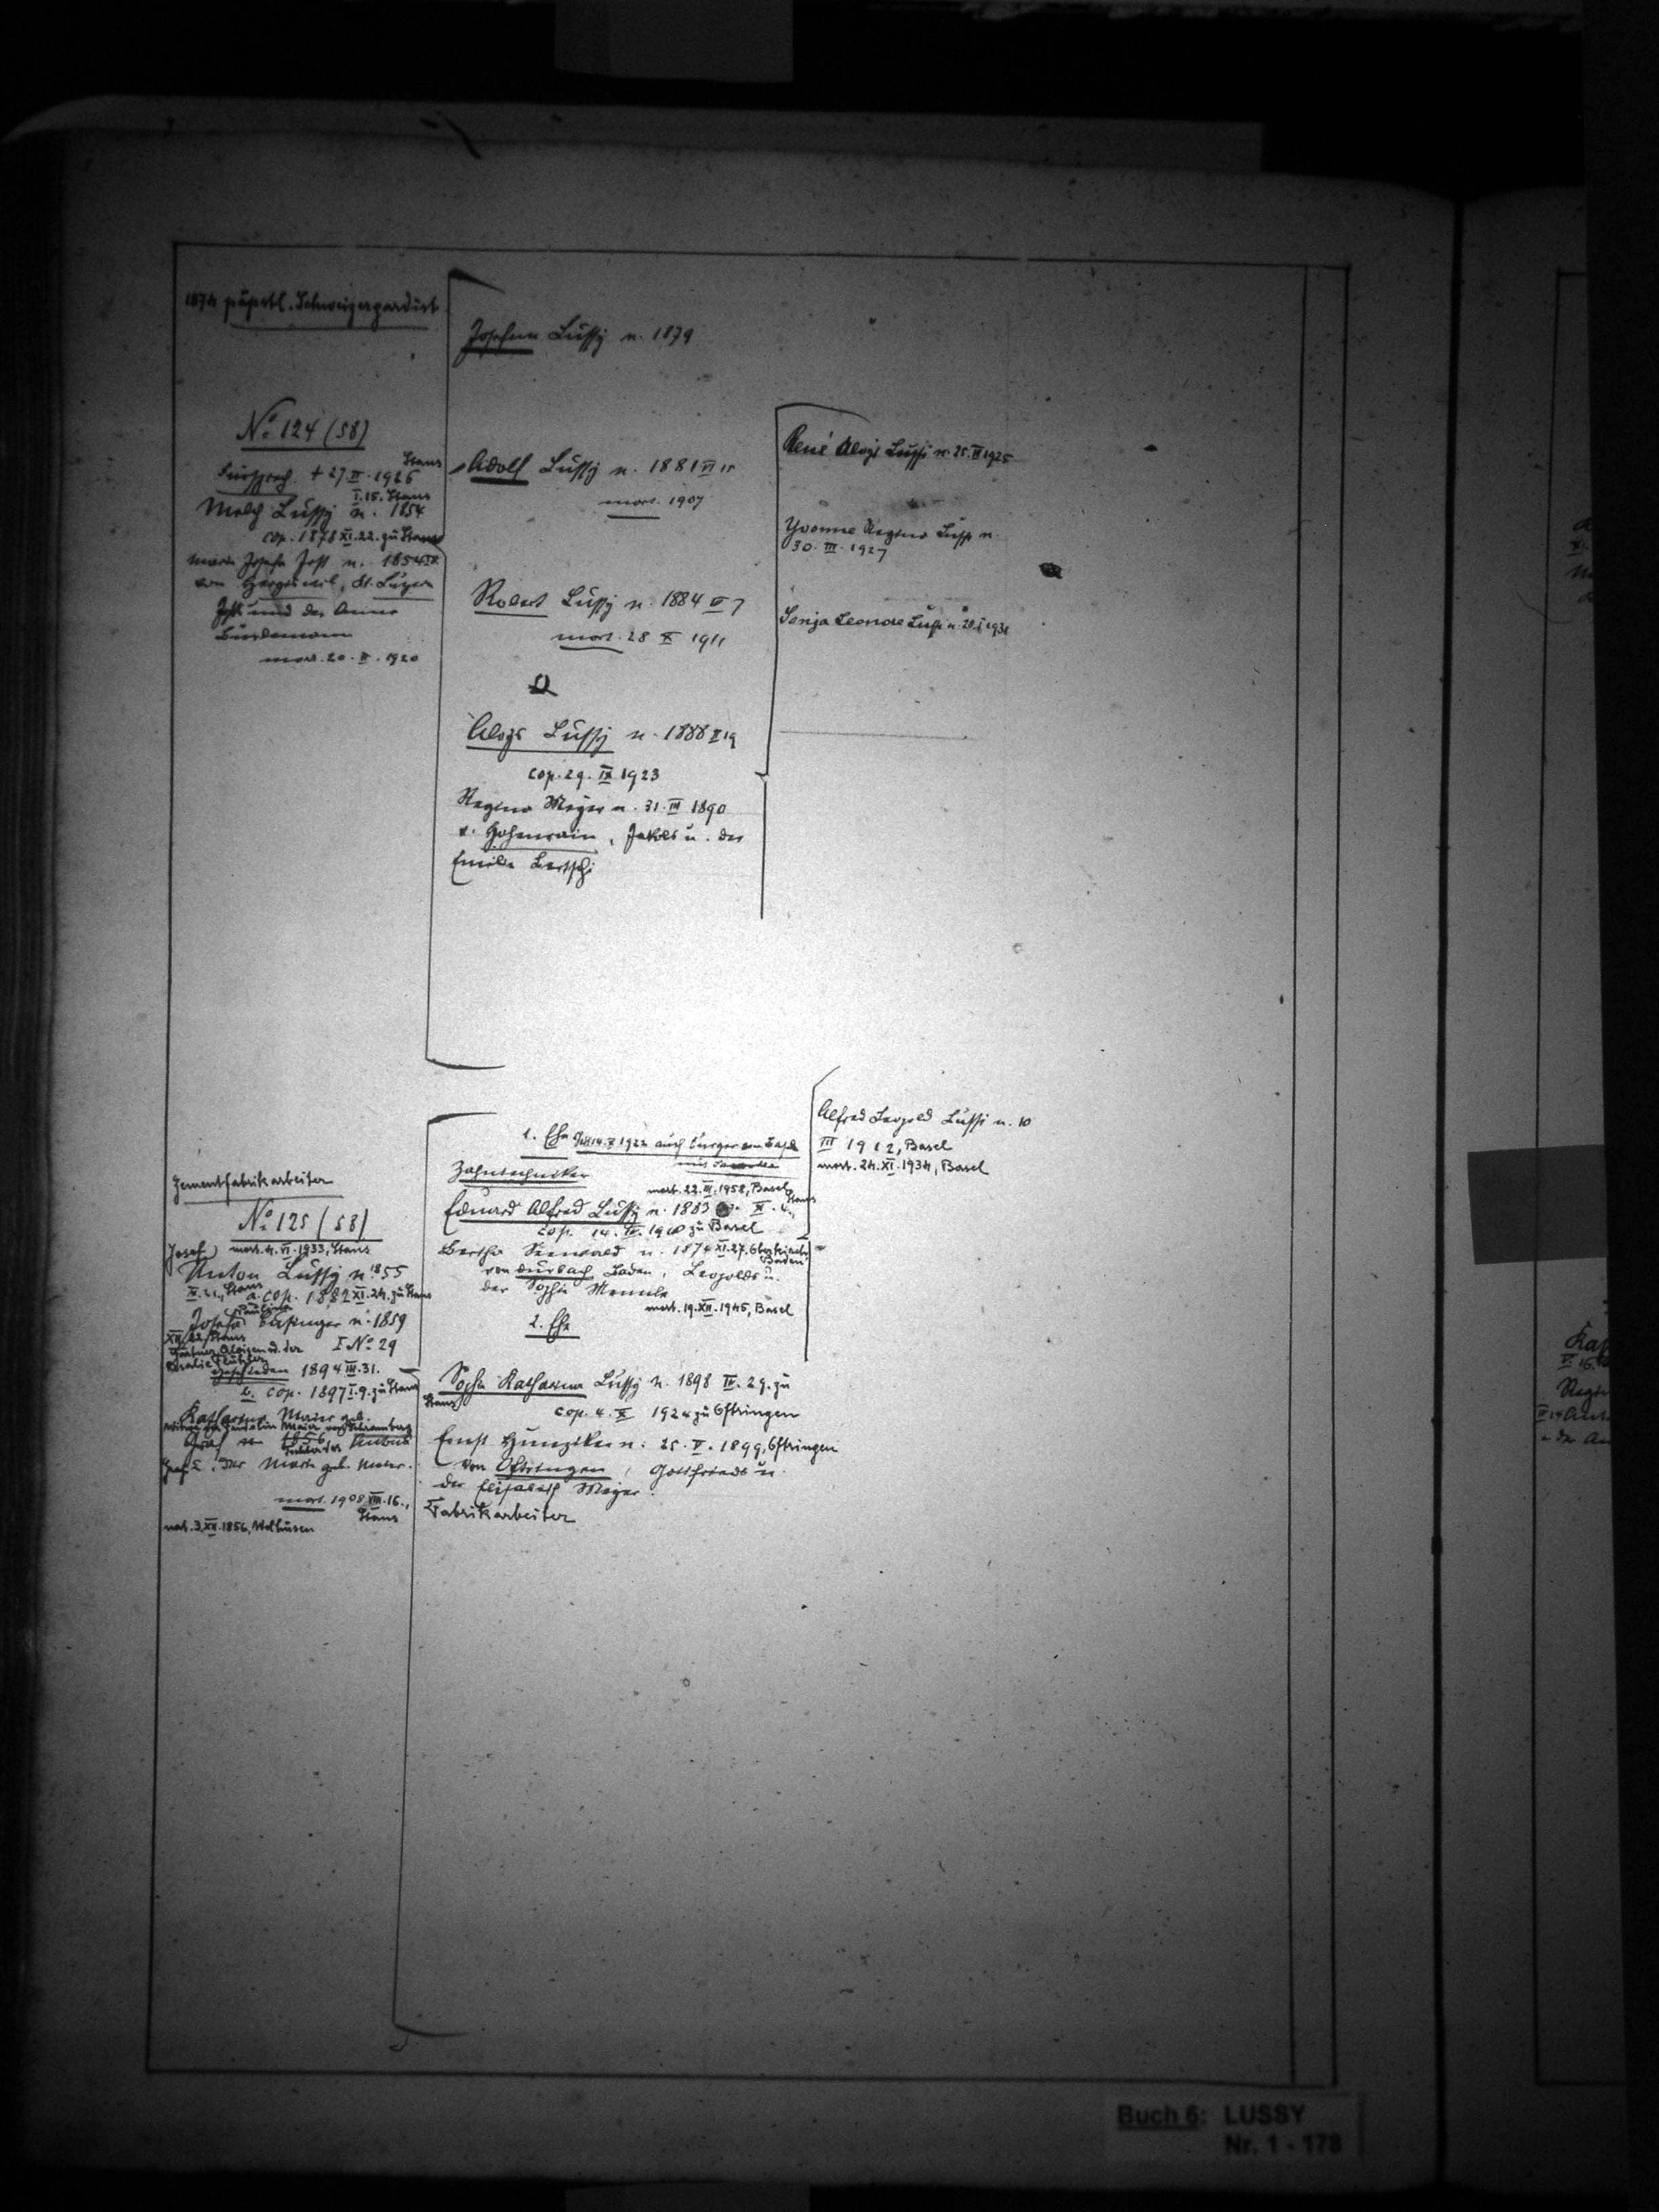 1874 päpstl. Schweizergardist
No 124 (58)
Fürsprech + 27 II. 1926 Stans
I. 15. Stans
Melch Lussy n. 1854
cop. 1878 XI. 22. zu Stans
Maria Josefa Jost n. 1854 IX
von Hergiswil, Kt. Luzern
und der Anna
mort. 20. II. 1920
Josefina Lussy n. 1879
Adolf Lussy n. 1881 VI 15
mort. 1907
Robert Lussy n. 1884 VI 7
mort. 28 X 1911
Aloys Lussy n. 1888 II 19
cop. 29. IX 1923
Regina Meyer n. 31. III 1890
v. Hohenrain, Jakobs u. der
Emilia Bertschi
René Aloys Lussi n. 25. 1925
Yvonne Regina Lussi n.
30. III. 1927
Sonja Leonore Lussi n. 20. I 1931
Zementfabrikarbeiter
No 125 (58)
Josef mort. 4. VI. 1933, Stans
Anton Lussy n. 1855
Stans
a. cop. 1882 XI. 24. zu Stans
Paulina
Josefa n. 1859
XII. 22. Stans
I No 29
geschieden 1894 III. 31.
b. cop. 1897 I. 9. zu Stans
Katharina Maier geb.
Graf
der Maria geb.
mort. 1908 VIII. 16.,
Stans
nat. 3. XII. 1856, Wolhusen
1. Ehe 14. V 1922 auch Bürger von Basel
Zahntechniker
mort. 22. III. 1958, Basel
Eduard Alfred Lussy n. 1883 Stans
cop. 14. IV. 1910 zu Basel
Bertha Seewald n. 1874 XI. 27. Oberkirch
Baden
von Durbach Baden, Leopolds u.
der Sophia Männle
mort. 19. XII. 1945, Basel
2. Ehe
Sophia Katharina Lussy n. 1898 IV. 29. zu
Stans
cop. 4. X 1924 zu Oftringen
Ernst Hunziker n. 25. V. 1899, Oftringen
von Oftringen, Gottfrieds u.
der Elisabeth Meyer.
Fabrikarbeiter
Alfred Leopold Lussi n. 10
III 1912, Basel
mort. 24. XI. 1934, Basel
Buch 6: LUSSY
Nr. 1 - 178